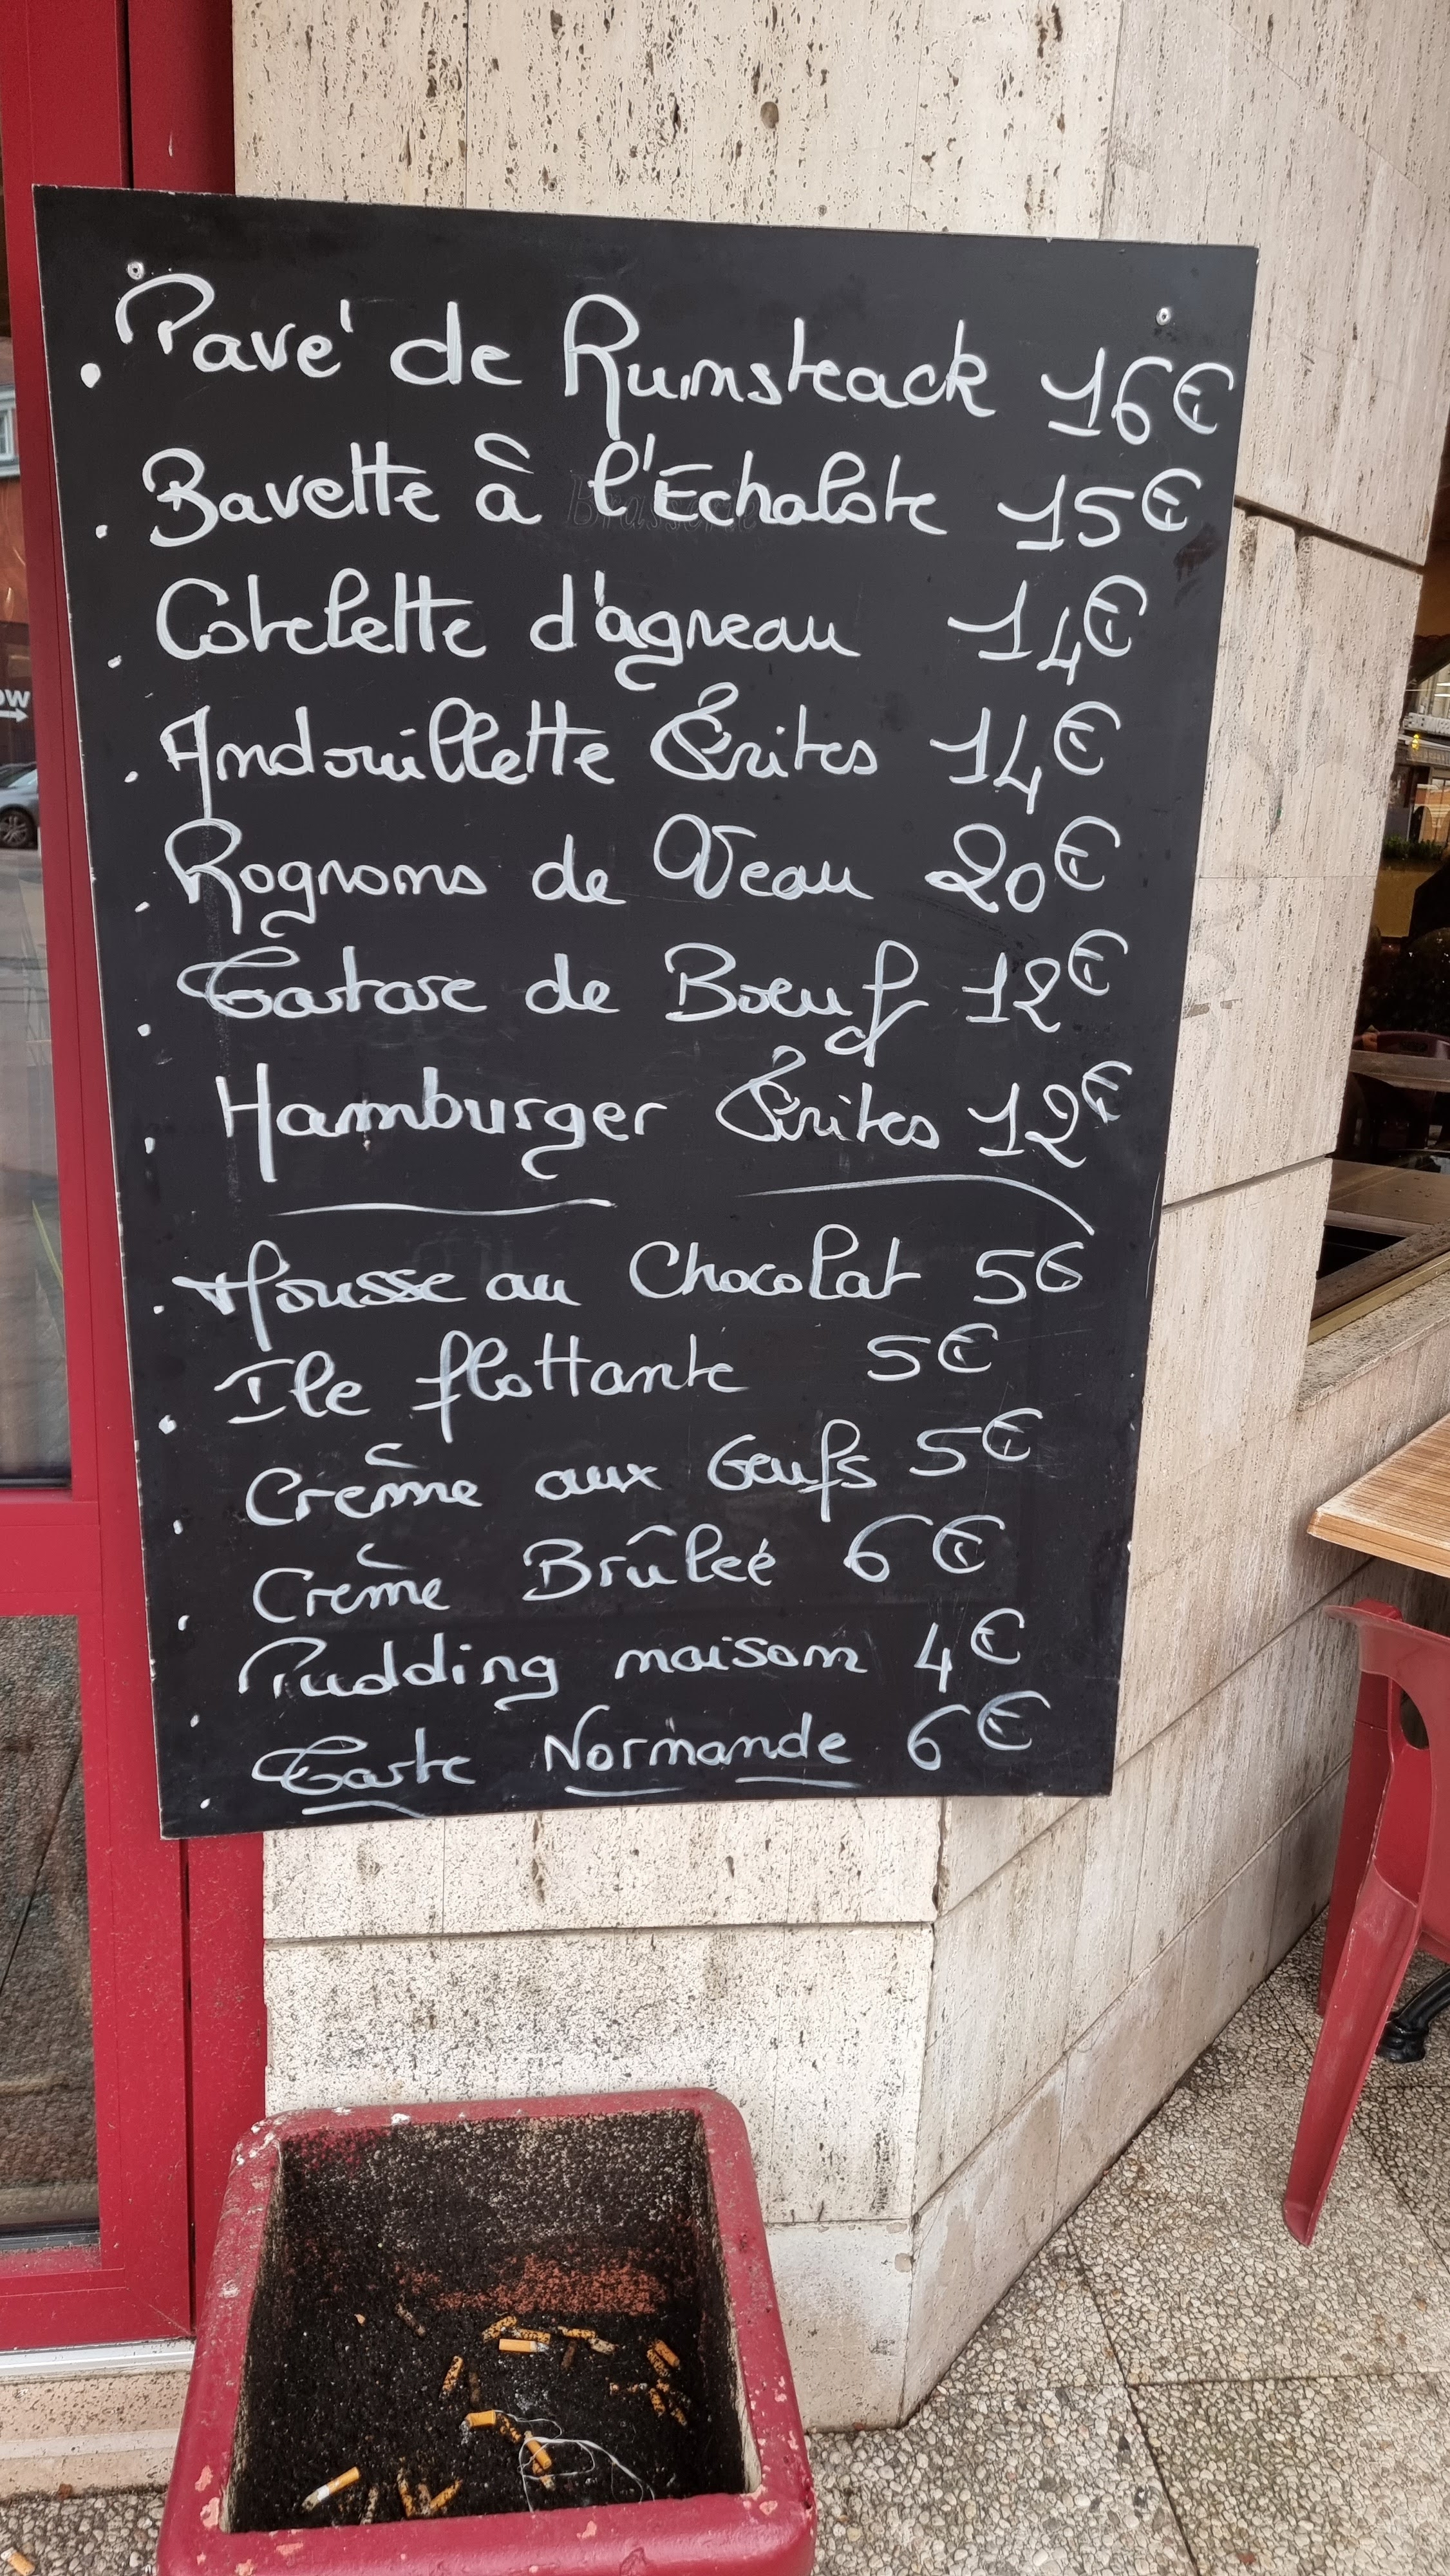 . Pavé de Rumsteack 16€
. Bavette à l'Echalote 15€
. Cotelette d'agneau 14€
. Andouillette Frites 14€
. Rognons de Veau 20€
. Tartare de Boeuf 12€
. Hamburger Frites 12€
. Mousse au Chocolat 5€
. Ile flottante 5€
. Crème aux Oeufs 5€
. Crème Brûleé 6€
. Pudding maison 4€
. Tarte Normande 6€